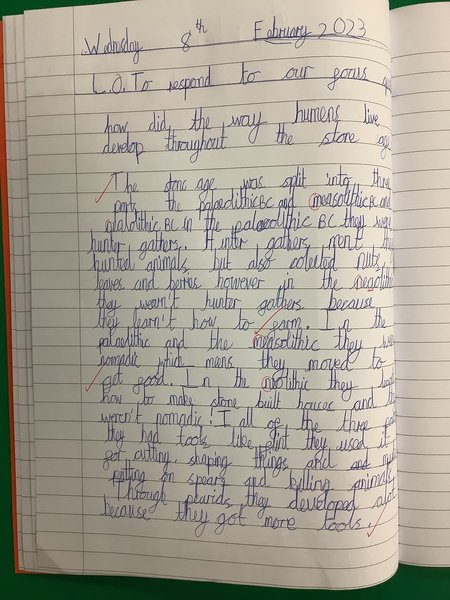 Wednesday 8th February 2023
L.O. To respond to our
how did the way humens live
develop throughout the stone age
The stone age was split into three
parts the palaeolithic BC and measolithic BC and
nialolithic BC in the palaeolithic BC they were
hunter gathers. Hunter gathers ment
hunted animals, but also colected nuts,
leaves and berres however in the
they wearn't hunter gathers because
they learn't how to farm. In the
palaedithic and the measolithic they
nomadic which mens they moved to
get good. In the neolithic they
how to make stone built houces and
weren't nomadic! I all of the three
they had tools like flint they used it
got cutting, shaping things and and
putting on spears and killing animals
Through pearids they developed alot
because they got more tools.